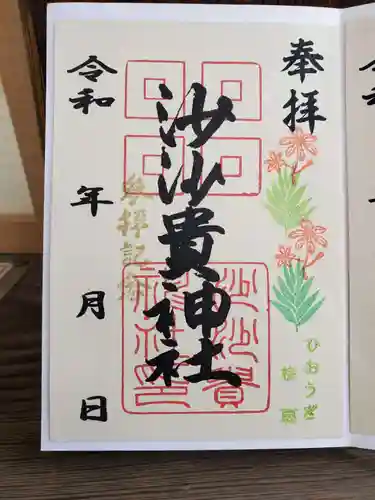 奉拝
沙沙貴神社
参拝記念
令和 年 月 日
ひおうぎ
沙沙貴神社印